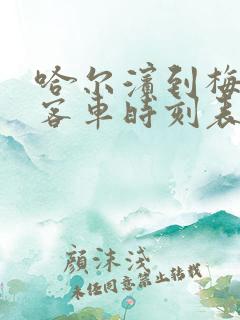 哈尔滨到梅
客车时刻表
颜沫浅
未经同意禁止转载